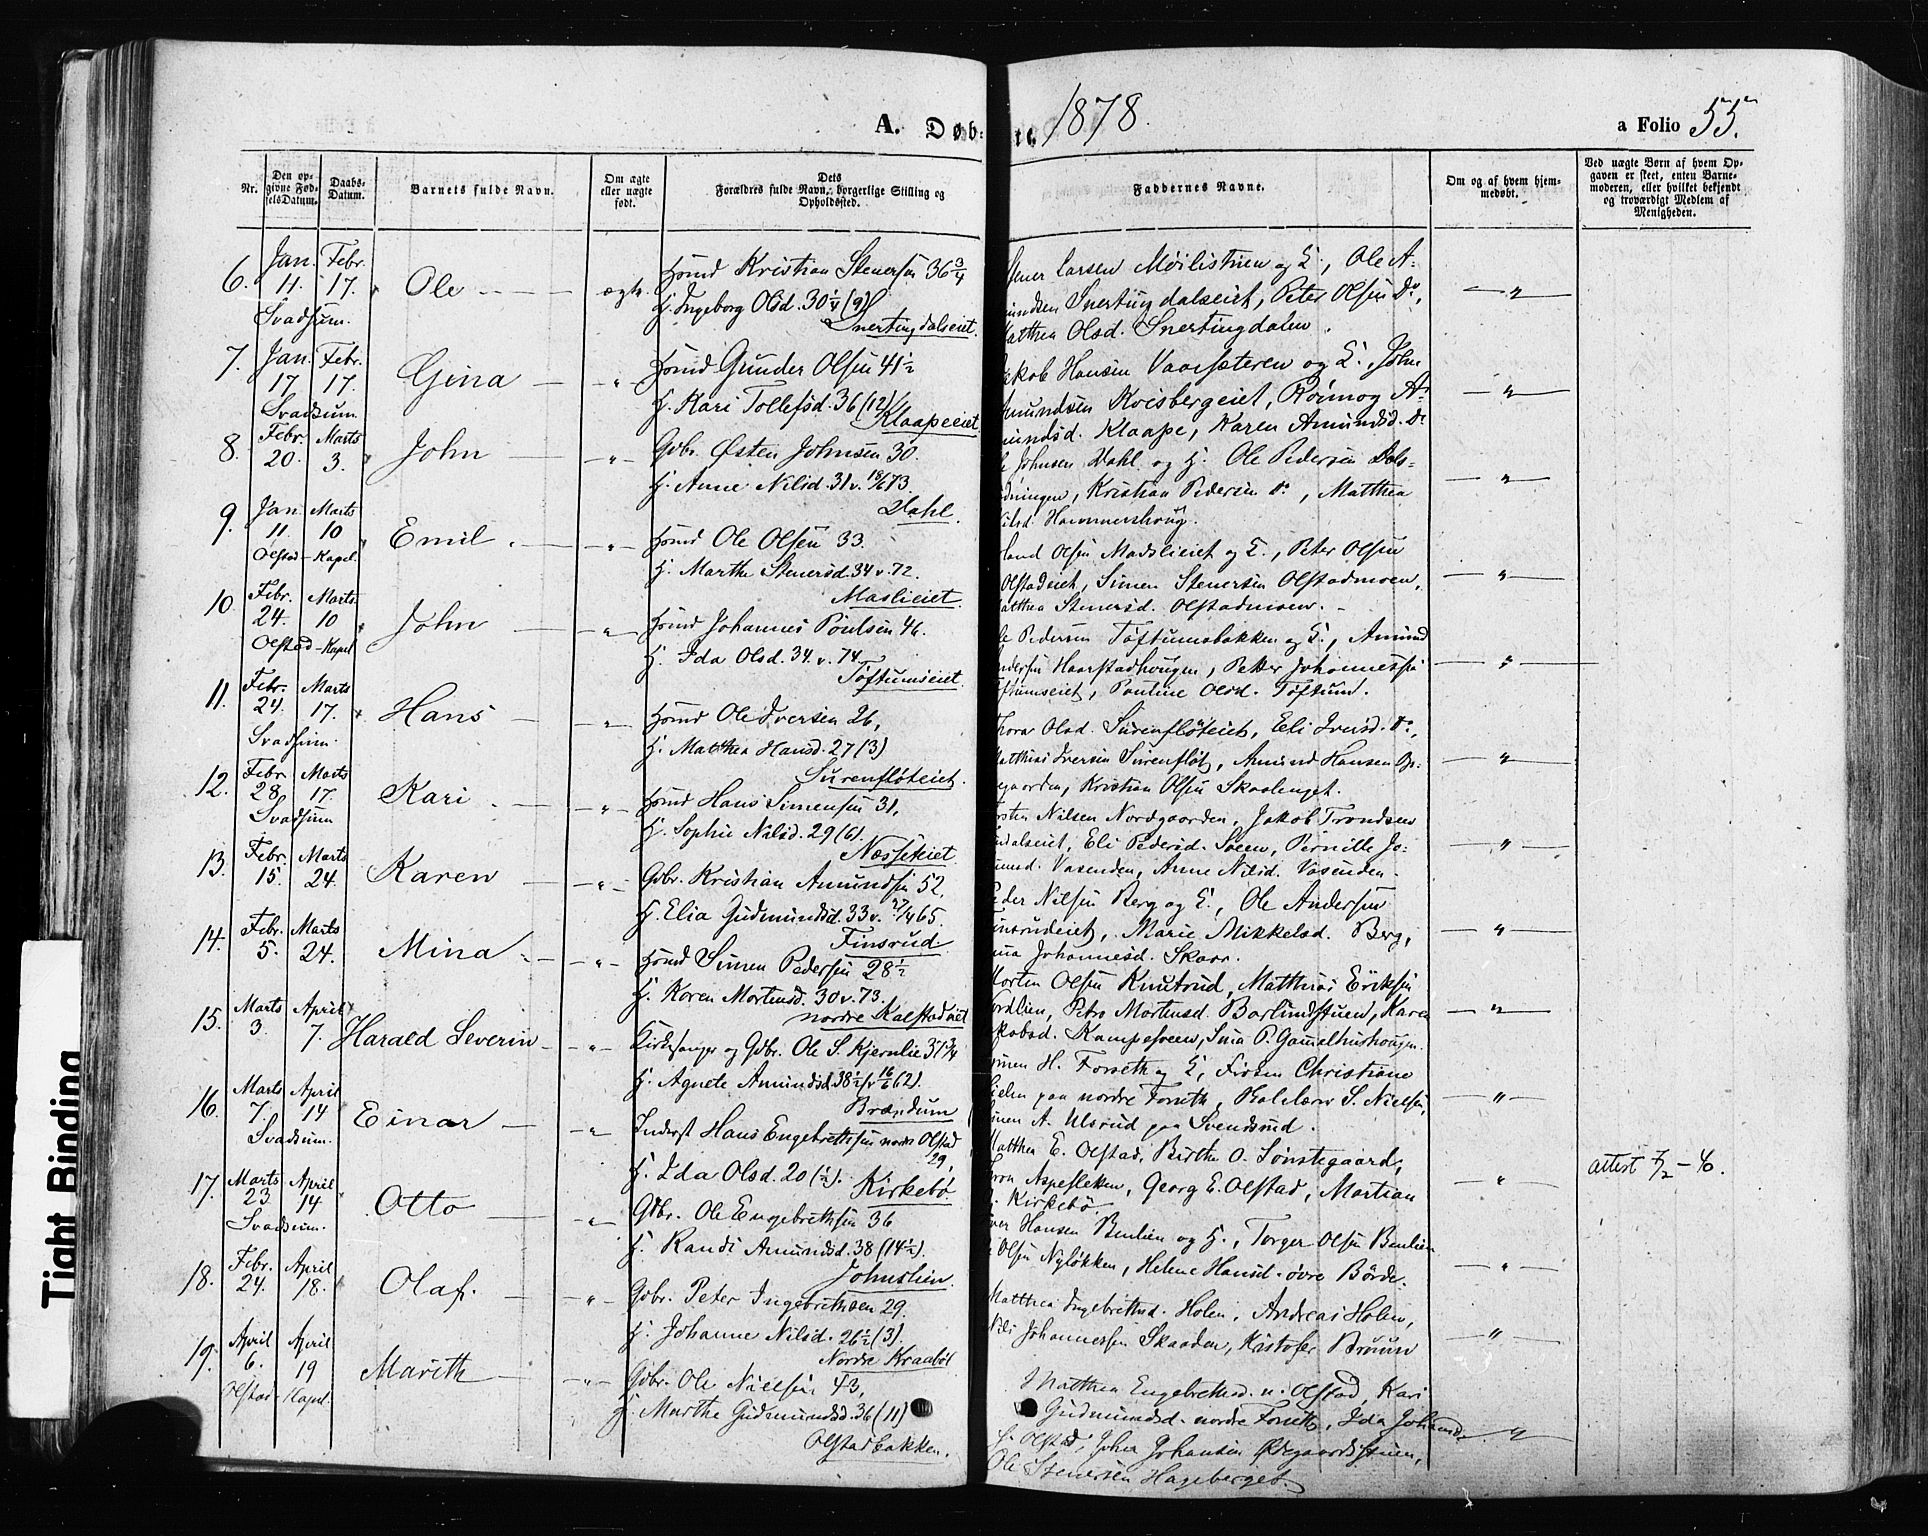 A. Døb-
te. 1878.
a Folio 55.
Nr.
Den op-
givne Fød-
selsDatum.
Daabs-
Datum.
Barnets fulde Navn.
Om ægte
eller uægte
født.
Dets
Forældres fulde Navn, borgerlige Stilling og
Opholdssted.
Faddernes Navne.
Om og af hvem hjem-
medøbt.
Ved uægte Børn af hvem Op-
gaven er skeet, enten Barne-
moderen, eller hvilket bekjendt
og troværdigt Medlem af
Menigheden.
6. Jan. 11. Febr. 17. Ole ægte
Svadsum.
Hsmd Kristian Stenersen 36 3/4
H. Ingeborg Olsd. 30 1/4 (9)
Snertingdalseiet.
Larsen Møilistuen og H., Ole A-
Snertingdalseiet, Peter Olsen Do,
Matthea Olsd. Snertingdalen.
7. Jan. 17 Febr. 17. Gina
Svadsum.
Hsmd Gunder Olsen 41 1/2
H. Kari Tollefsd. 36 (12)
Klaapeeiet
Hansen Vaarsæteren og H. John
Kvisbergeiet, Rønnog A-
Klaape, Karen Amundsd. Do
8. Febr. 20. Marts 3. John
Gdbr. Østen Johnsen 30.
H. Anne Nilsd. 31 v. 18/6 73.
Dahl.
Johnsen Dahl og H. Ole Pedersen Dals-
Kristian Pedersen Do, Matthea
Hammershoug.
9. Jan. 11. Marts 10 Emil
Olstad - Kapel.
Hsmd Ole Olsen 33.
H. Marthe Stenersd. 34 v. 72.
Maslieiet.
Olsen Madslieiet og H., Peter Olsen
Olstadeiet, Simen Stenersen Olstadmoen,
Matthea Stenersd. Olstadmoen.
10. Febr. 24. Marts 10 John
Olstad - Kapel
Hsmd Johannes Poulsen 46.
H. Ida Olsd. 34. v. 74.
Toftumseiet.
Pedersen Toftumsbakken og H., Amund
Haarstadhougen, Petter Johannessen
Pauline Olsd. Toftum.
11. Febr. 24. Marts 17. Hans
Svadsum.
Hsmd Ole Iversen 26,
H. Matthea Hansd. 27 (3)
Surenfløteiet.
Thora Olsd. Surenfløteiet, Eli Iversd. Do,
Matthias Iversen Surenfløt, Amund Hansen
Kristian Olsen Skaalenget.
12. Febr. 28. Marts 17. Kari
Svadsum
Hsmd Hans Simensen 31,
H. Sophie Nilsd. 29 (6).
Næsseteiet
Nilsen Nordgaarden, Jakob Trondsen
Eli Pedersd. Søen, Pernille Jo-
Vasenden, Anne Nilsd. Vasenden
13. Febr. 15. Marts 24. Karen
Gdbr. Kristian Amundsen 52,
H. Elia Gudmundsd. 33 v. 27/4 65.
Finsrud.
Nilsen Berg og H., Ole Andersen
Finsrudeiet, Marie Mikkelsd. Berg,
Johannesd. Skaar.
14. Febr. 5. Marts 24. Mina
Hsmd Simen Pedersen 28 1/2
H. Karen Mortensd. 30 v. 73.
nordre Kalstadeiet
Morten Olsen Knutrud, Matthias Eriksen
Nordlien, Petro Mortensd. Baslundstuen, Karen
Kampesveen, Sina P. Gammelhushougen.
15. Marts 3. April 7. Harald Severin
Kirkesanger og Gdbr. Ole S. Kjernlie 37 3/4
H. Agnete Amundsd. 38 1/2 (v 16/6 62).
Brændum
H. Forseth og H., Frøken Christiane
paa nordre Forseth, S. Nielsen,
A. Ulsrud paa Svendsrud.
16. Marts 7. April 14 Einar
Svadsum.
Inderst Hans Engebrethsen nordre Olstad
29,
H. Ida Olsd. 20 (1/2).
Kirkebø
Matthea E. Olstad, Birthe O. Lønstegaard,
Aspesletten, Georg E. Olstad, Martian
Kirkebø.
attest 7/2 - 40.
17. Marts 23 April 14 Otto
Svadsum.
Gdbr. Ole Engebrethsen 36
H. Randi Amundsd. 38 (14 1/2).
Johnslien.
Hansen Benlien og H., Torger Olsen Benlien
Olsen Nyløkken, Helene Hansd. øvre Børde.
18. Febr. 24. April 18. Olaf.
Gdbr. Peter Ingebrethsen 29
H. Johanne Nilsd. 26 1/2 (3).
Nordre Kraabøl
Matthea Ingebrethsd. Holen, Andreas Holen,
Nils Johannessen Skaaden, Kristofer Bruun
19. April 6. April 19 Marith
Olstad - Kapel.
Gdbr. Ole Nielsen 43,
H. Marthe Gudmundsd. 36 (11)
Olstadbakken.
Matthea Engebrethsd. n. Olstad, Kari
Gudmundsd. nordre Forseth, Ida Johansd.
s. Olstad, Johan Johansen Ødegaardsstuen,
Ole Stenersen Hageberget.
Tight Binding